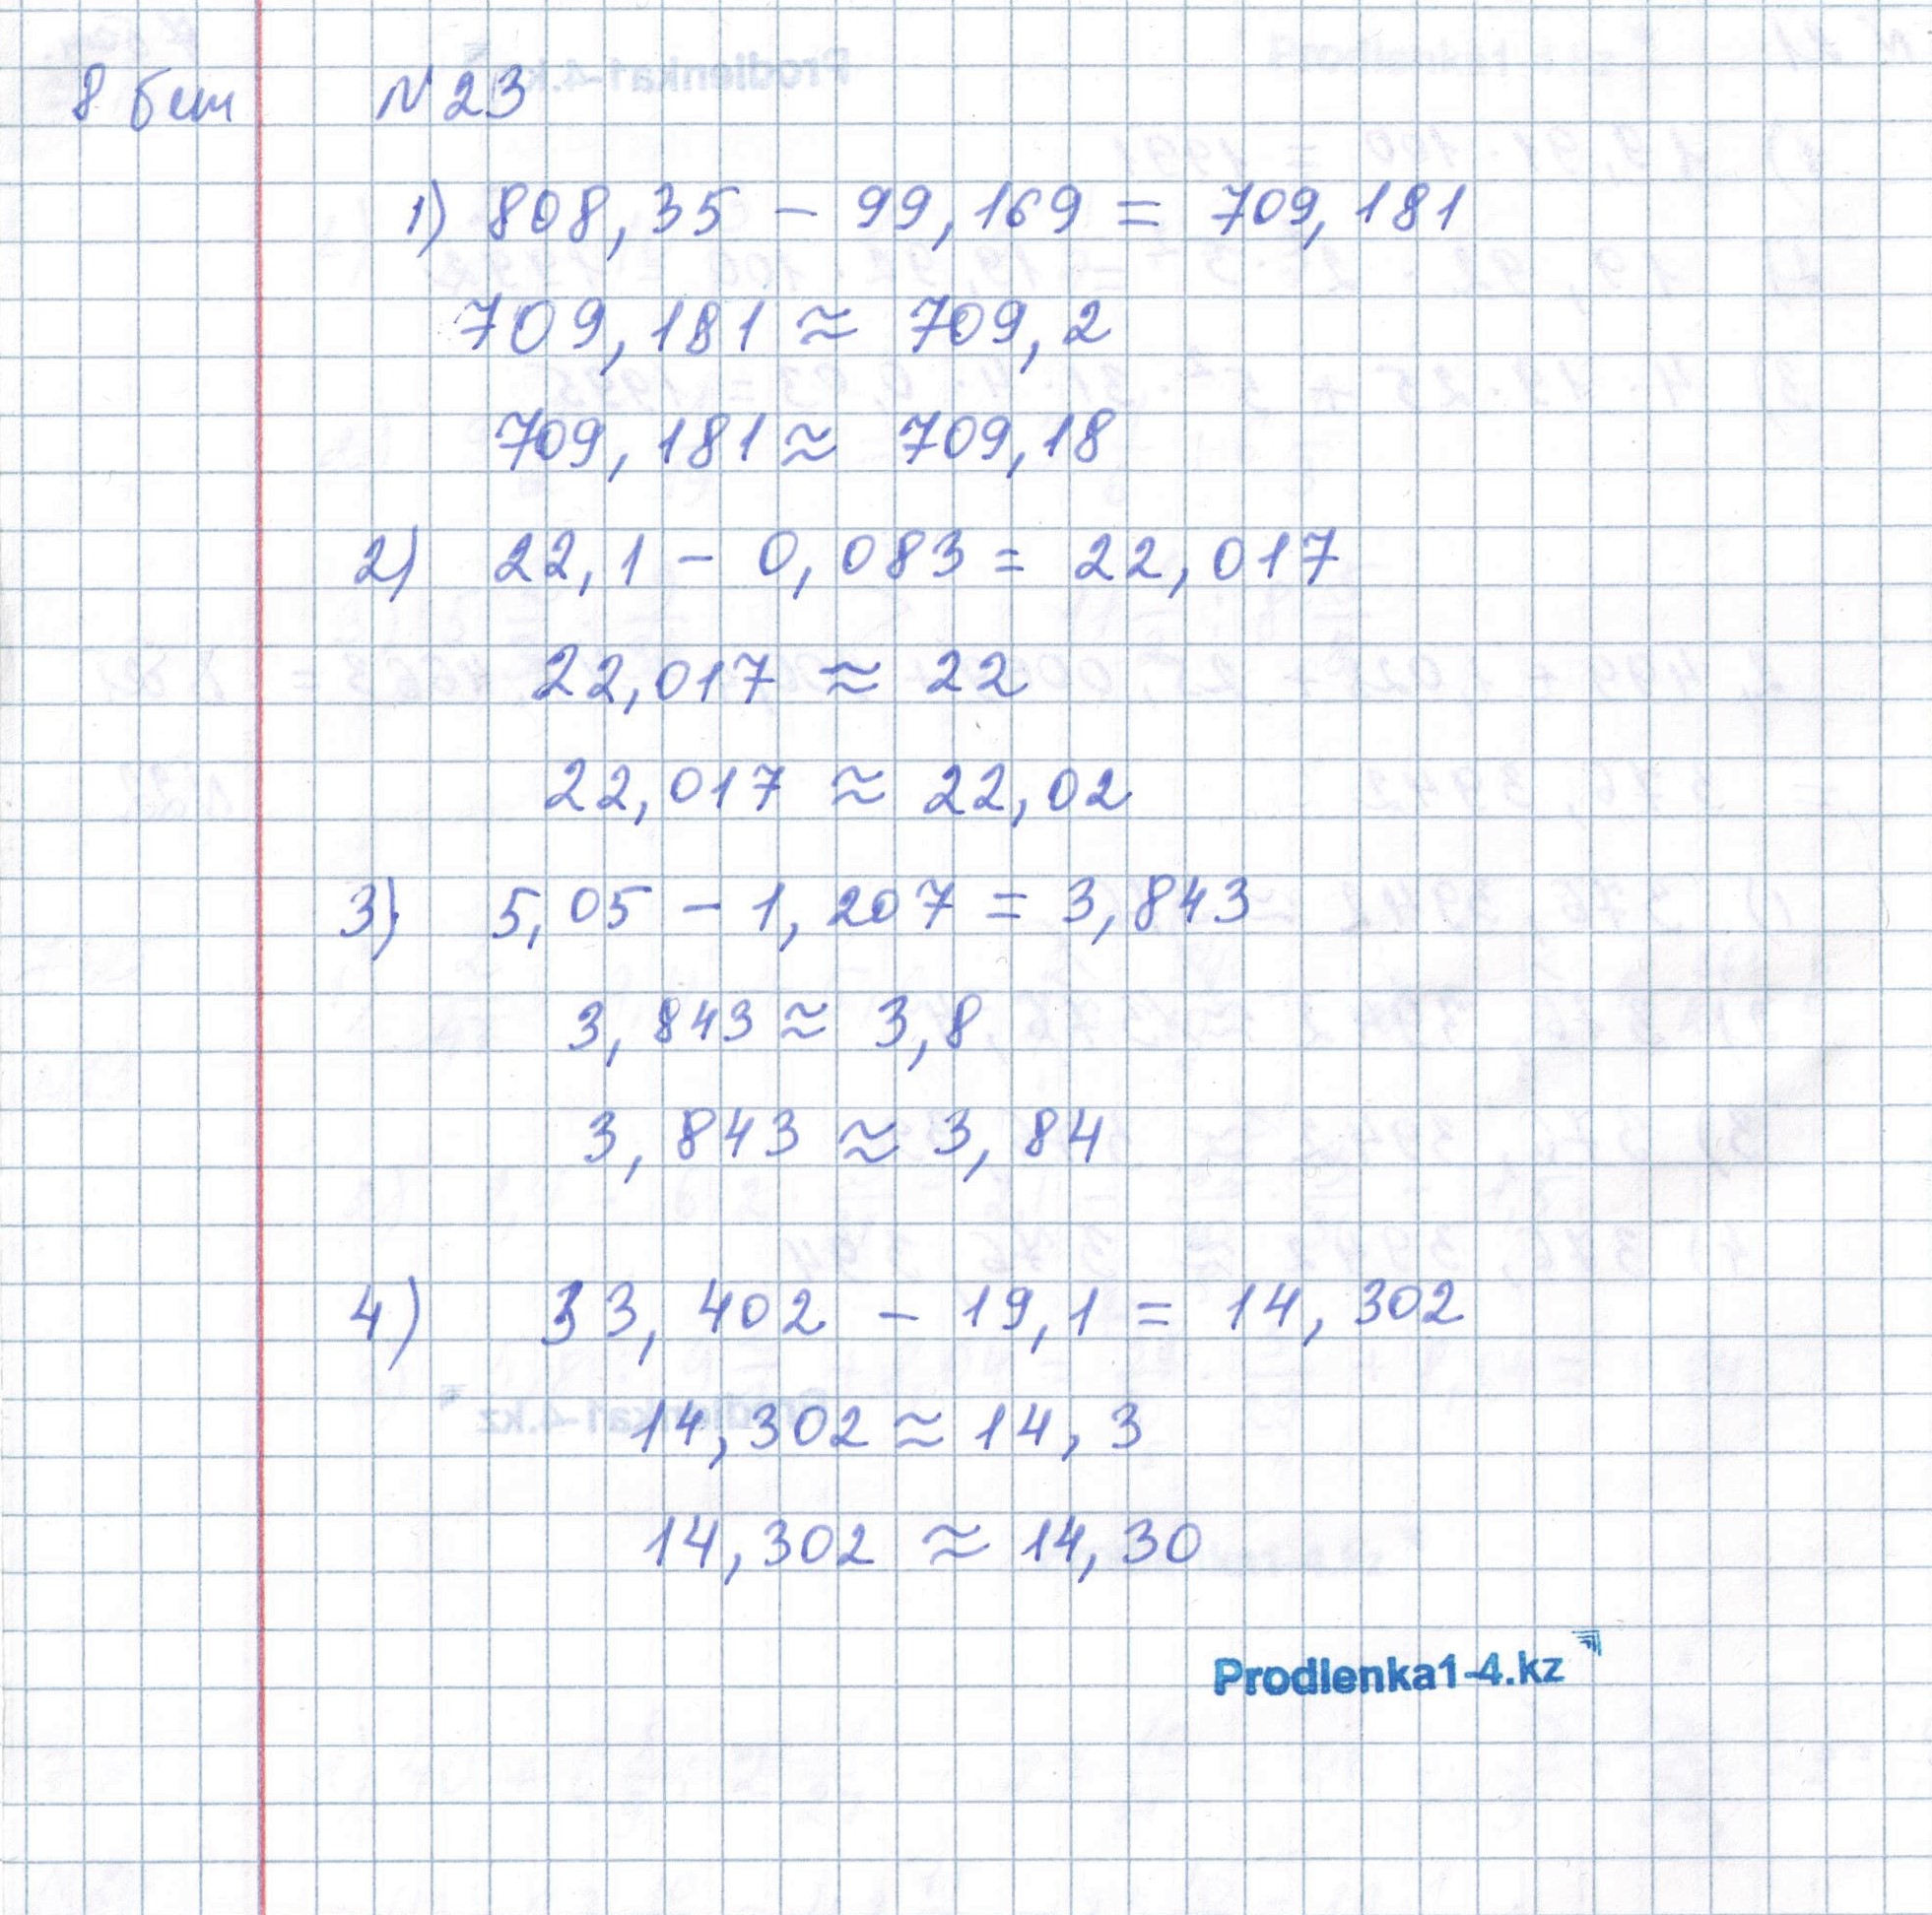 8 бет №23
1) 808,35 - 99,169 = 709,181
709,181 ≈ 709,2
709,181 ≈ 709,18
2) 22,1 - 0,083 = 22,017
22,017 ≈ 22
22,017 ≈ 22,02
3) 5,05 - 1,207 = 3,843
3,843 ≈ 3,8
3,843 ≈ 3,84
4) 33,402 - 19,1 = 14,302
14,302 ≈ 14,3
14,302 ≈ 14,30
Prodlenka1-4.kz